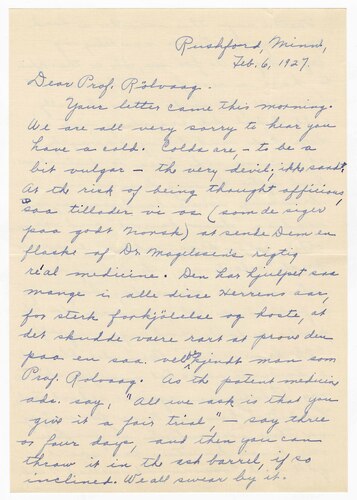 Rushford, Minn.,
Feb. 6, 1927.
Dear Prof. Rölvaag.
Your letter came this morning.
We are all very sorry to hear you
have a cold. Colds are, – to be a
bit vulgar – the very devil, ikke sandt.
At the risk of being thought officious,
saa tillader vi os (som de siger
paa godt Norsk) at sende Dem en
flaske af Dr. Magelssen's rigtig
real medicine. Den har hjulpet saa
mange i alle disse Herrens aar,
for sterk forkjölelse og hoste, at
det skudde være rart at prove den
paa en saa vel kjendt man som
Prof. Rolvaag. As the patent medicin
ads. say, "All we ask is that you
give it a fair trial," – say three
or four days, and then you can
throw it in the ash barrel, if so
inclined. We all swear by it.